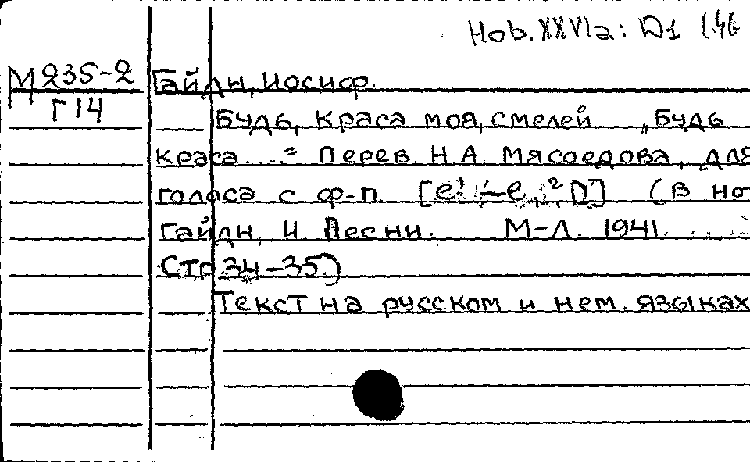 Hob. XXVIa: D1
М 235-2 Гайдн, Иосиф.
Г 14
Будь, краса моя, смелей „Будь
краса ..." Перев. Н.А. Мясоедова, для
голоса с ф-п. (В но
Гайдн, И. Песни. М-Л. 1941. ...
Стр. 34-35)
Текст на русском и нем. языках